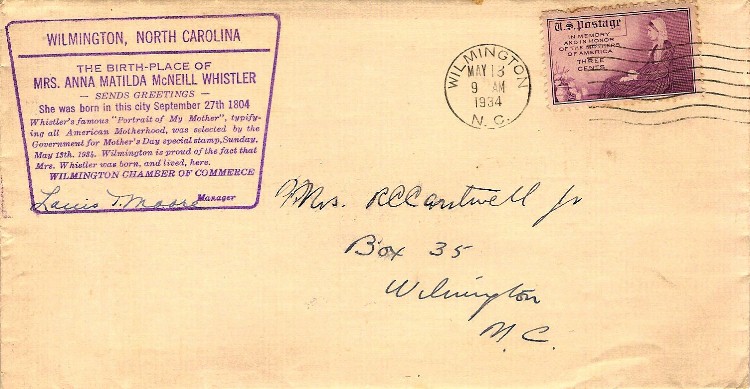 WILMINGTON, NORTH CAROLINA
THE BIRTH-PLACE OF
MRS. ANNA MATILDA McNEILL WHISTLER
— SENDS GREETINGS —
She was born in this city September 27th 1804
Whistler's famous "Portrait of My Mother", typify-
ing all American Motherhood, was selected by the
Government for Mother's Day special stamp, Sunday,
May 13th, 1934. Wilmington is proud of the fact that
Mrs. Whistler was born, and lived, here.
WILMINGTON CHAMBER OF COMMERCE
Louis T. Moore Manager
WILMINGTON
MAY 13
9 AM
1934
N. C.
U.S. Postage
IN MEMORY
AND IN HONOR
OF THE MOTHERS
OF AMERICA
THREE
CENTS
Mrs. R C Cantwell Jr
Box 35
Wilmington
N. C.